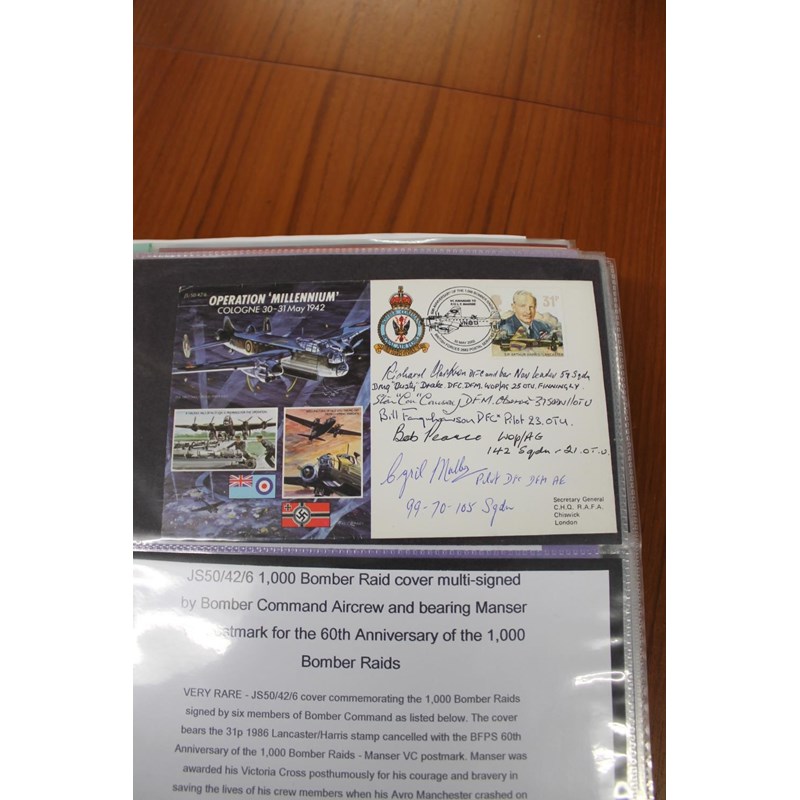 JS50/42/6
OPERATION 'MILLENNIUM'
COLOGNE 30-31 May 1942
31P
SIR ARTHUR HARRIS/LANCASTER
Richard
Doug "Dusty" Drake. DFC. DFM. WOP/AG 25 OTU. FINNINGLEY.
DFM. Observer
Bill Farquharson DFC* Pilot 23. O.T.U.
Bob Pearce WOP/AG
142 Sqdn - 21. O.T.U.
Cyril Pilot DFC DFM AE
99-70-105 Sqdn
Secretary General
C.H.Q. R.A.F.A.
Chiswick
London
JS50/42/6 1,000 Bomber Raid cover multi-signed
by Bomber Command Aircrew and bearing Manser
for the 60th Anniversary of the 1,000
Bomber Raids
VERY RARE - JS50/42/6 cover commemorating the 1,000 Bomber Raids
signed by six members of Bomber Command as listed below. The cover
bears the 31p 1986 Lancaster/Harris stamp cancelled with the BFPS 60th
Anniversary of the 1,000 Bomber Raids - Manser VC postmark. Manser was
awarded his Victoria Cross posthumously for his courage and bravery in
saving the lives of his crew members when his Avro Manchester crashed on